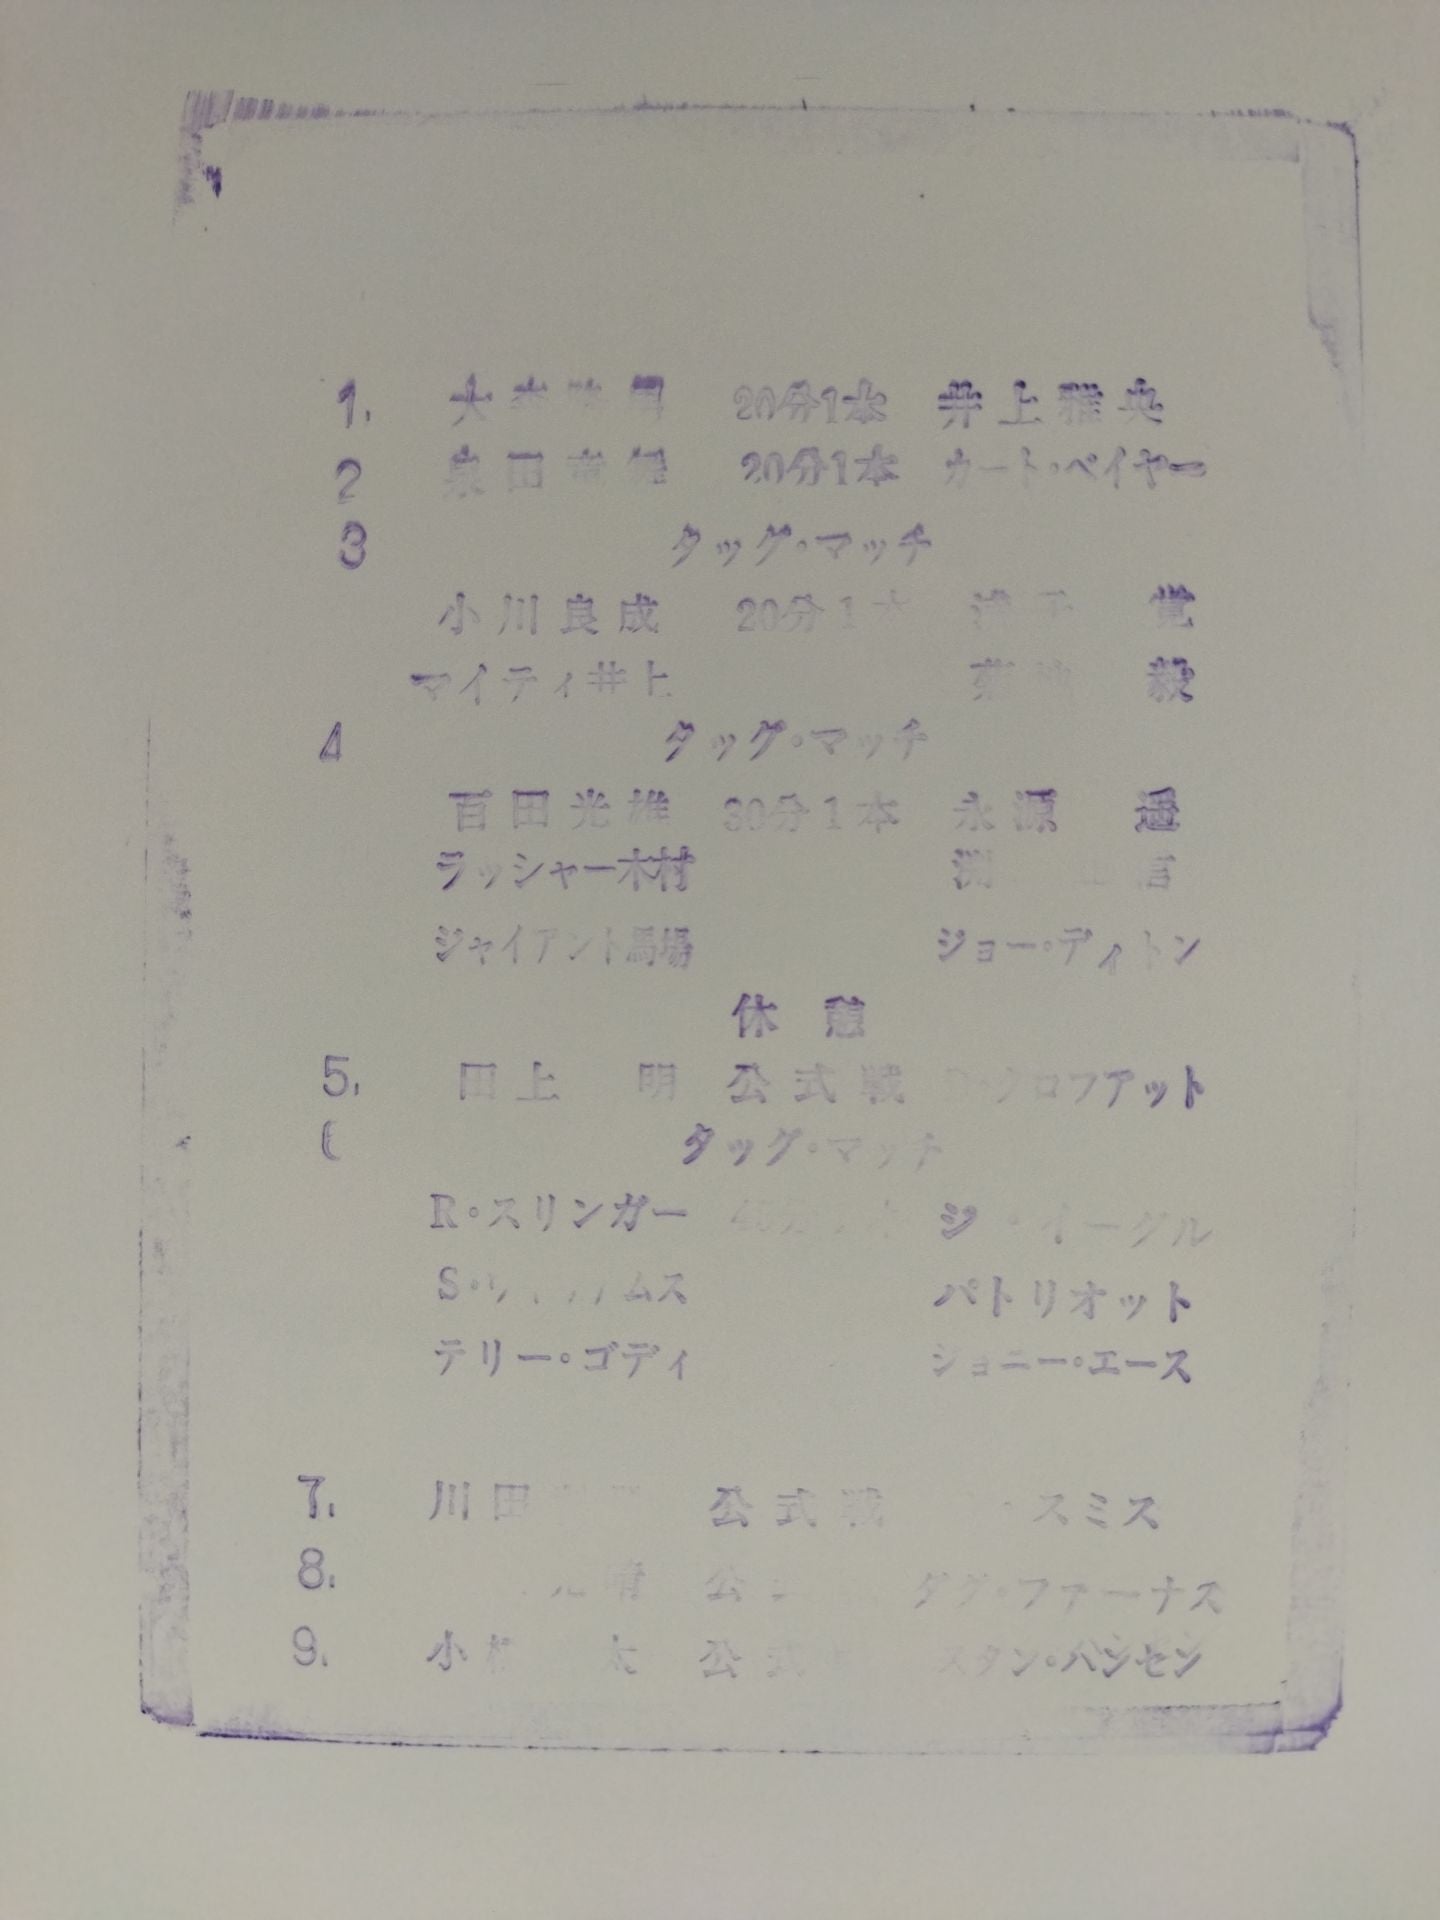 1. 大森隆男 20分1本 井上雅央
2 泉田竜舞 20分1本 カート・ベイヤー
3 タッグ・マッチ
小川良成 20分1本 覚
マイティ井上 菊地 毅
4 タッグ・マッチ
百田光雄 30分1本 永源 遥
ラッシャー木村
ジャイアント馬場 ジョー・ディトン
休憩
5. 田上 明 公式戦 クロフアット
タッグ・マッチ
R・スリンガー イーグル
S・ パトリオット
テリー・ゴディ ジョニー・エース
7. 川田 公式戦 スミス
8. ダグ・ファーナス
9. 公式 スタン・ハンセン